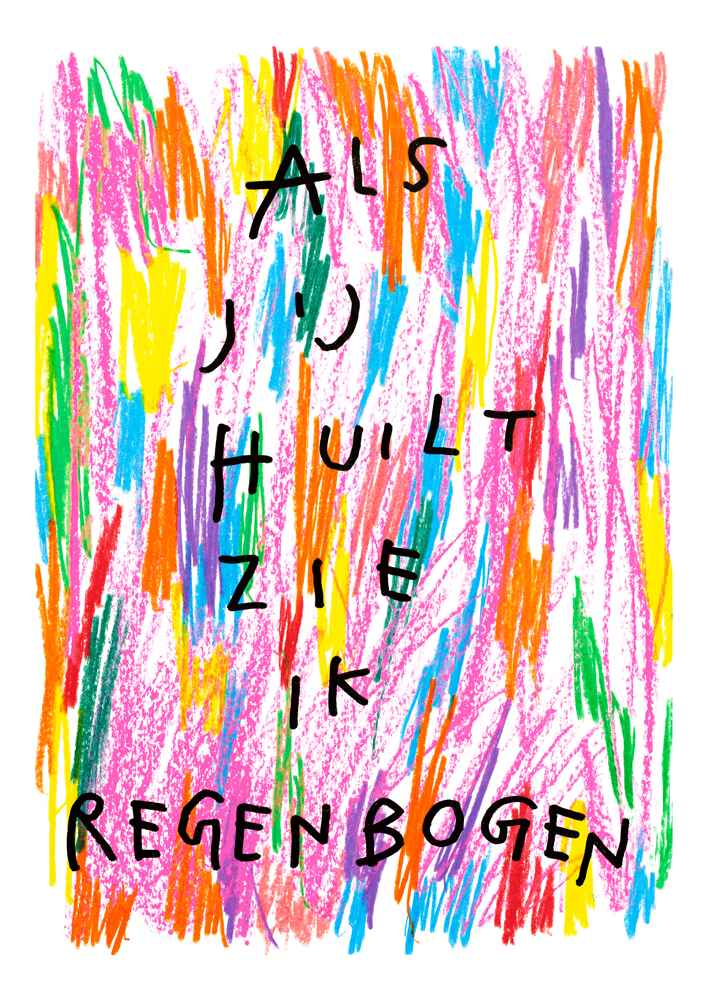 ALS
J'IJ
HUILT
ZIE
IK
REGENBOGEN